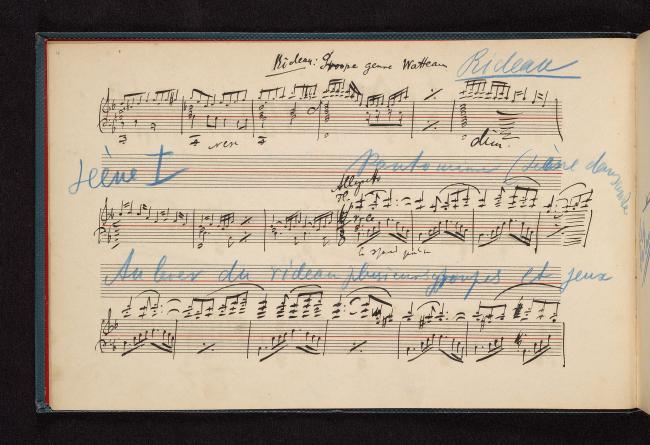 Rideau: Troupe genre Watteau Rideau
dim.
Scène I Pantomime (Scène dansante
Allegretto
Au lever du rideau plusieurs groupes et jeux